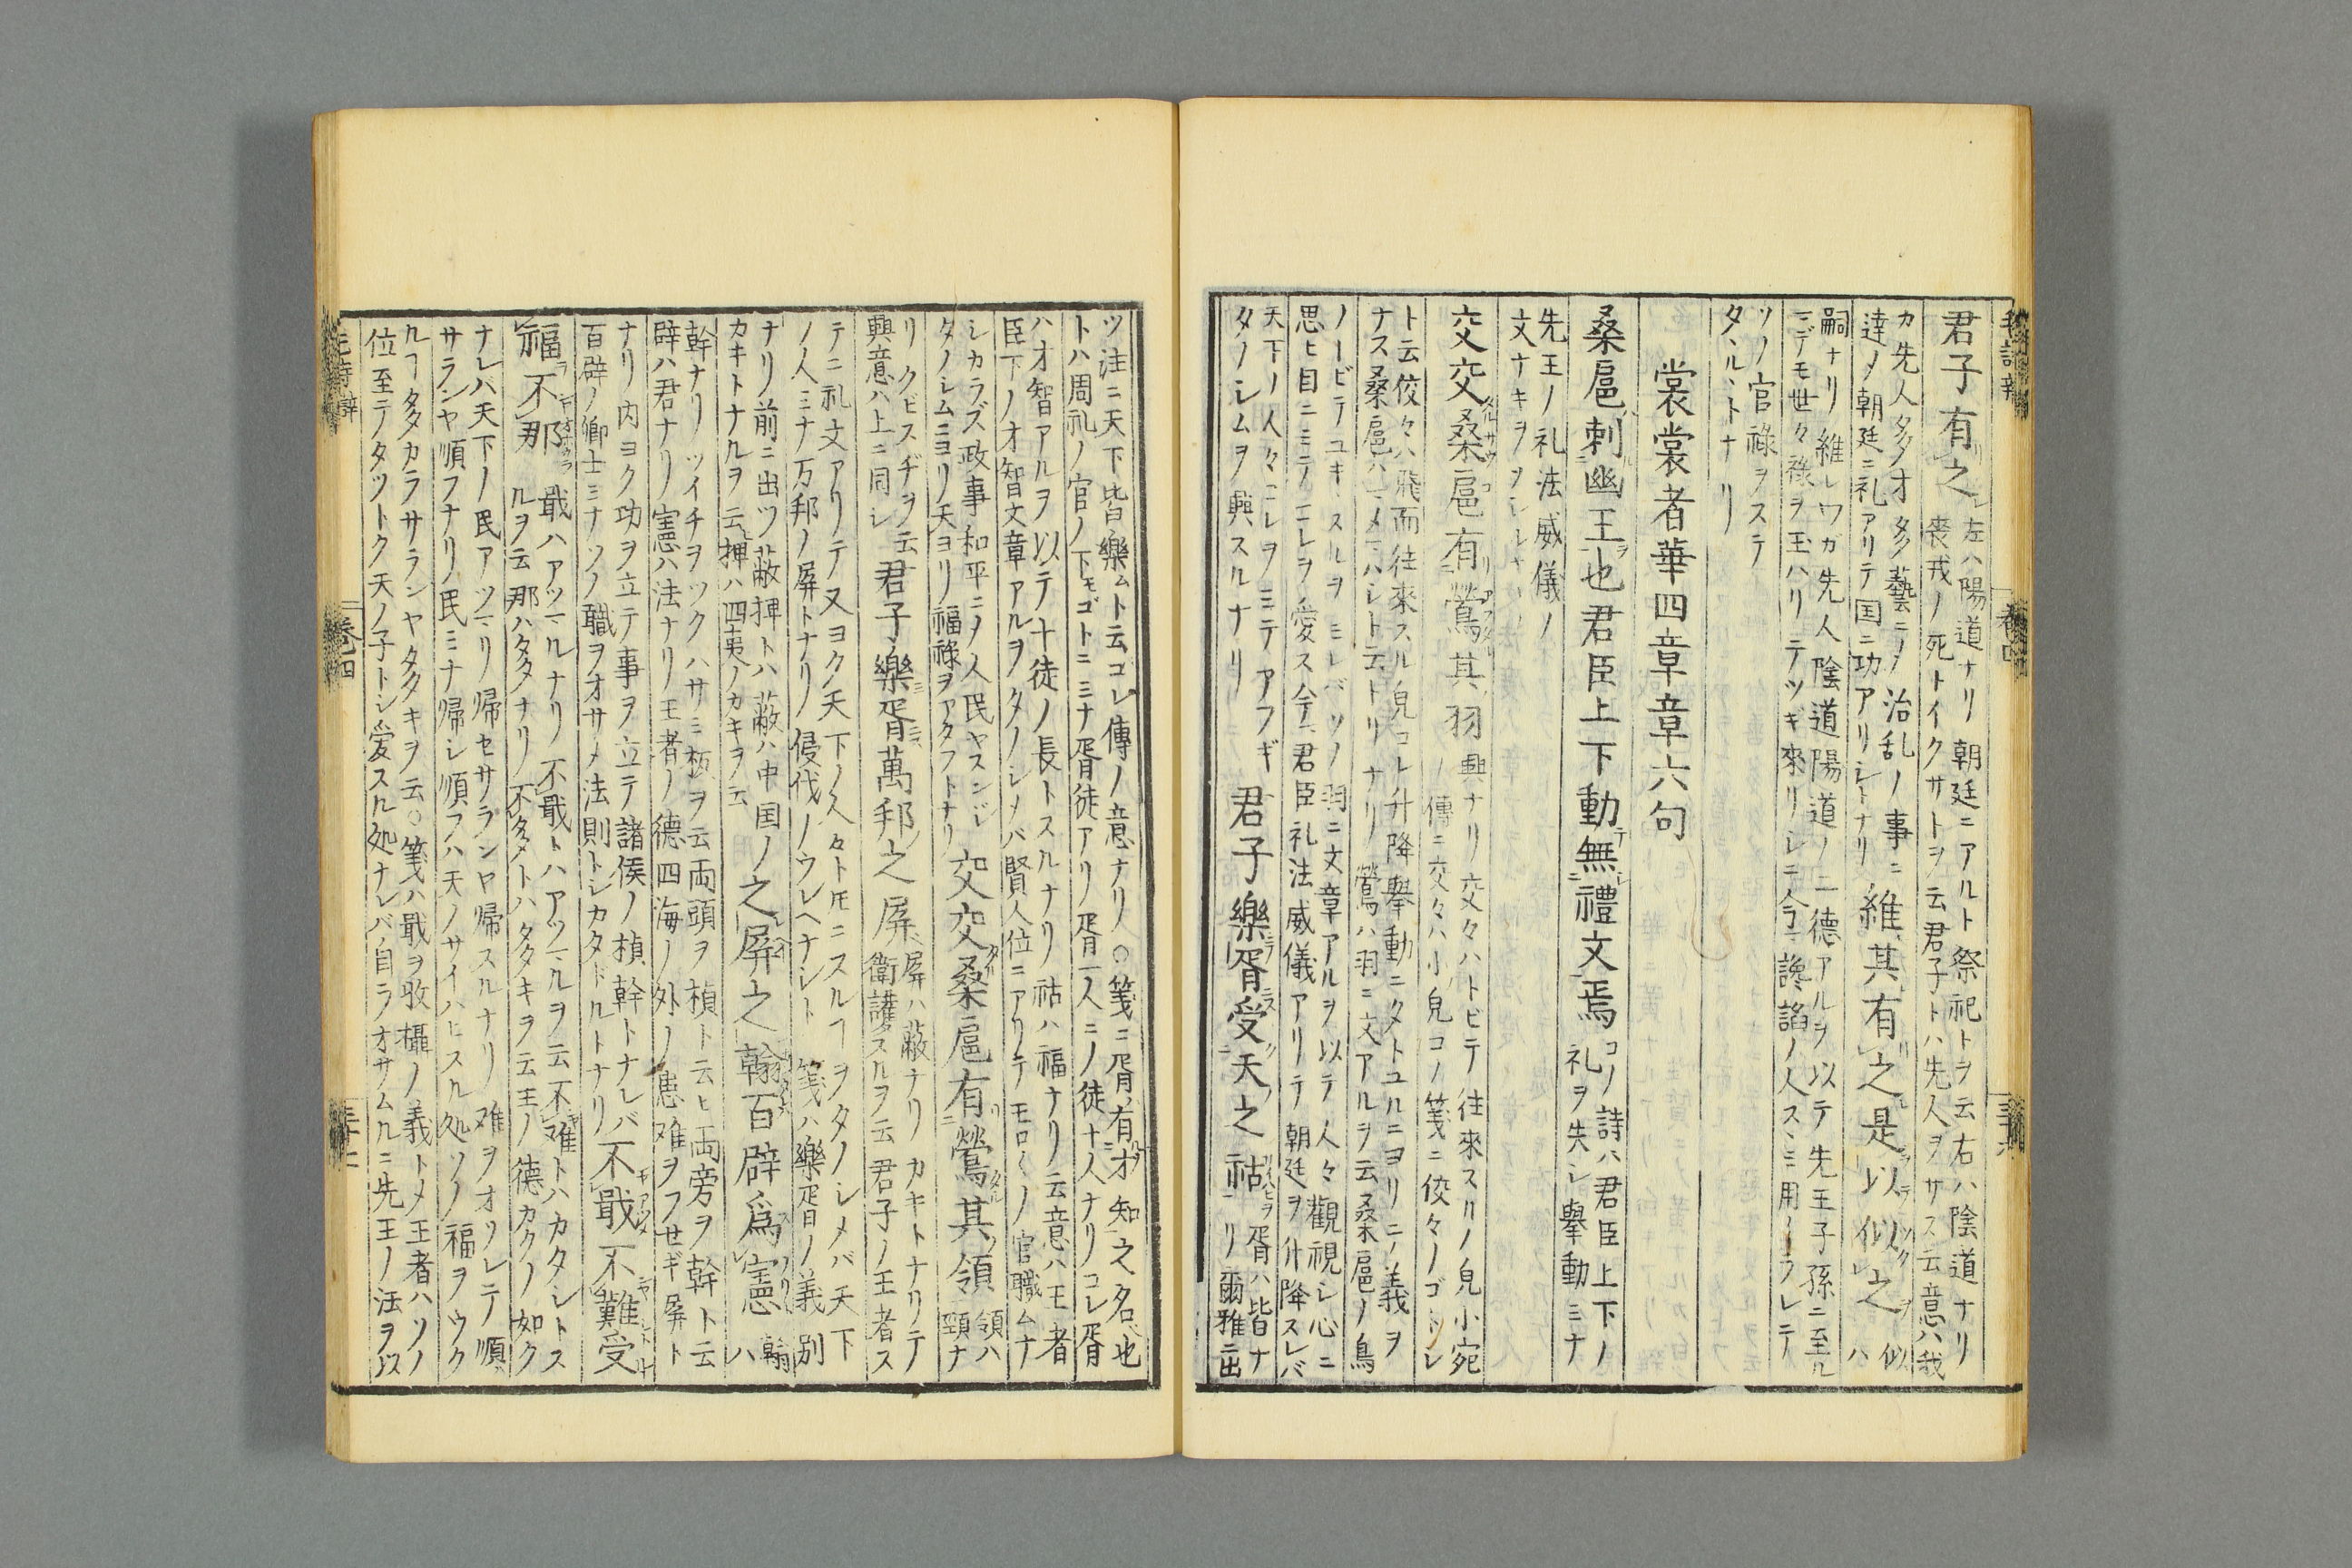 君子有之 左ハ陽道ナリ 朝廷ニアルト祭祀トヲ云右ハ陰道ナリ
喪戎ノ死トイクサトヲ云君子トハ先人ヲサス云意ハ我
カ先人多才多藝ニノ治乱ノ事ニ
達ノ朝廷ニ礼アリテ国ニ功アリシトナリ
維其有之是以似之 似ハ
嗣ナリ維レワガ先人陰道陽道ノ二德アルヲ以テ先王子孫ニ至ル
マデモ世々祿ヲ玉ハリテツギ來リシニ今讒諂ノ人スヽミ用ヒラレテ
ソノ官祿ヲステ
タルヽトナリ
裳裳者華四章章六句
桑扈刺幽王也君臣上下動無禮文焉 コノ詩ハ君臣上下ノ
礼ヲ失シ擧動ミナ
先王ノ礼法威儀ノ
文ナキヲソシル
交交桑扈有鶯其羽 興ナリ交々ハトビテ往來スルノ皃小宛
ノ傳ニ交々ハ小皃コノ箋ニ佼々ノゴトシ
ト云佼々ハ飛而往來スル皃コレ升降擧動ニタトユルニヨリテノ義ヲ
ナス桑扈ハマメマハシト云トリナリ鶯ハ羽ニ文アルヲ云桑扈ノ鳥
ノトビテユキヽスルヲミレバソノ羽ニ文章アルヲ以テ人々觀視シ心ニ
思ヒ目ニミテコレヲ愛ス今君臣礼法威儀アリテ朝廷ヲ升降スレバ
天下ノ人々コレヲミテアフギ
タノシムヲ興スルナリ
君子樂胥受天之祜 胥ハ皆ナ
リ爾雅ニ出
ツ注ニ天下皆樂ムト云コレ傳ノ意ナリ○箋ニ胥有才知之名也
トハ周礼ノ官ノ下モゴトニミナ胥徒アリ胥一人ニノ徒十人ナリコレ胥
ハオ智アルヲ以テ十徒ノ長トスルナリ祜ハ福ナリ云意ハ王者
臣下ノオ智文章アルヲタノシメバ賢人位ニアリテモロ〱ノ官職ムナ
シカラズ政事和平ニノ人民ヤスンジ
タノシムニヨリ天ヨリ福祿ヲアタフトナリ
交交桑扈有鶯其領 領ハ
頸ナ
リクビスヂヲ云
興意ハ上ニ同シ
君子樂胥萬邦之屏 屏ハ蔽ナリカキトナリテ
衛護スルヲ云君子ノ王者ス
テニ礼文アリテ又ヨク天下ノ人々ト𪜈ニスルヿヲタノシメバ天下
ノ人ミナ万邦ノ屏トナリ侵伐ノウレヘナシト 箋ハ樂胥ノ義別
ナリ前ニ出ツ蔽捍トハ蔽ハ中国ノ
カキトナルヲ云捍ハ四夷ノカキヲ云
之屏之翰百辟爲憲 翰
ハ
幹ナリツイヂヲツクハサミ板ヲ云両頭ヲ楨ト云ヒ両旁ヲ幹ト云
辟ハ君ナリ憲ハ法ナリ王者ノ德四海ノ外ノ患难ヲフセギ屏ト
ナリ内ヨク功ヲ立テ事ヲ立テ諸侯ノ楨幹トナレバ
百辟ノ卿士ミナソノ職ヲオサメ法則トシカタドルトナリ
不戢不難受
福不那 戢ハアツマルナリ不戢トハアツマルヲ云不难トハカタシトス
ルヲ云那ハ多ナリ不多トハ多キヲ云王ノ德カクノ如ク
ナレバ天下ノ民アツマリ帰セサランヤ帰スルナリ难ヲオソレテ順
サランヤ順フナリ民ミナ帰シ順フハ天ノサイハヒスル処ソノ福ヲウク
ルヿ多カラサランヤ多キヲ云○箋ハ戢ヲ收攝ノ義トメ王者ハソノ
位至テタツトク天ノ子トシ愛スル処ナレバ自ラオサムルニ先王ノ法ヲ以ス
卷四